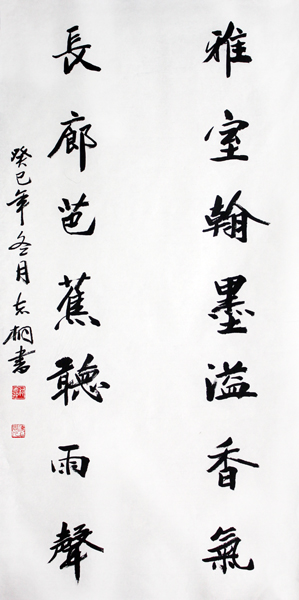 雅室翰墨溢香氣
長廊芭蕉聽雨聲
癸巳年冬月志桐書